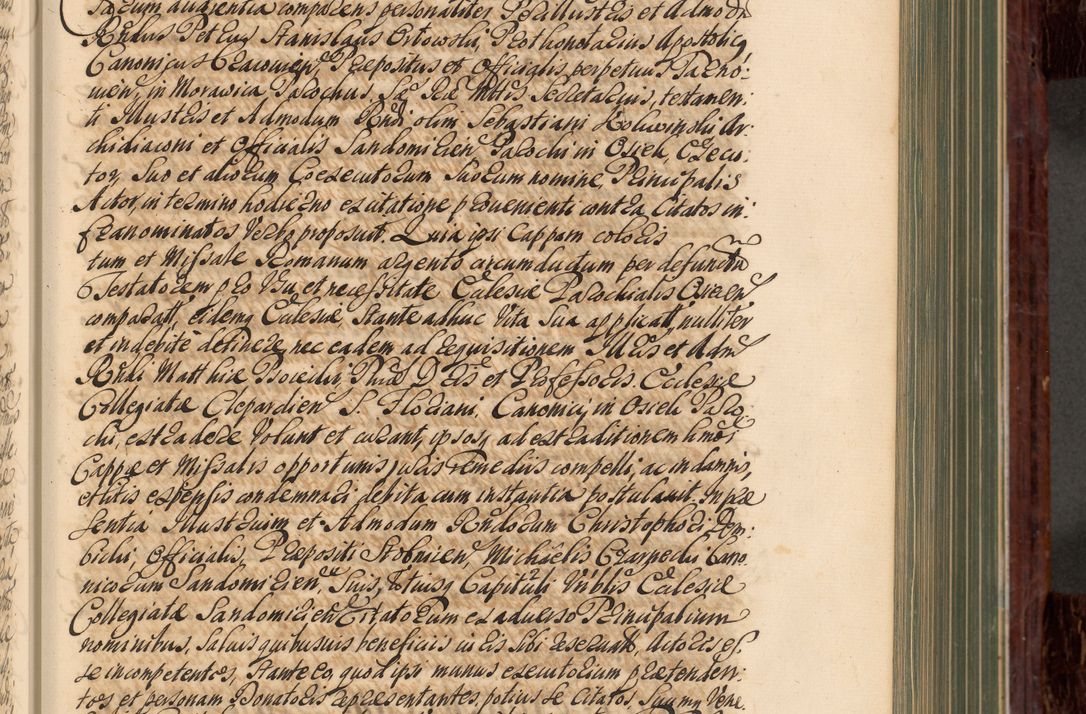 Iudicium diligentia comparens personaliter Perillustris et Admodu
Rndus Petrus Stanislaus Orłowski, Prothonotarius Apostolicq
Canonicus Cracovien, Præpositus et Officialis perpetuus Tarno:
vien, in Morawica Parochus, Sac Ræ Mttis Secretarius, testamen:
ti Illustris et Admodum Rndi olim Sebastiani Kołuwinski Ar:
chidiaconi et Officialis Sandomirien Parochi in Osiek, Execu:
tor, suo et aliorum Coexecutorum suorum nomine, Principalis
Actor, in termino hodierno ex citatione provenienti contra Citatos in:
franominatos Verbo proposuit. Quia ipsi Cappam coloris
tum et Missale Romanum argento circumductum per defunctu
Testatorem pro Usu et necessitate Ecclesiæ Parochialis Osiecen
comparatt, eidemq Ecclesiæ, stante adhuc Vita sua applicatt, nulliter
et indebite detinere, nec eadem ad requisitionem Illris et Admd
Rndi Matthiæ Psocidii, Phiæ Dris et Professoris, Ecclesiæ
Collegiatæ Clepardien S. Floriani, Canonici, in Osiek Paro:
chi, extradere Volunt et curant, ipsosq ad extraditionem hmoi
Cappæ et Missalis opportunis juris remediis compelli, ac in damnis,
et litis expensis condemnari debita cum instantia postulavit. In præ
sentia Illustrium et Admodum Rndorum Christophori Dem:
bicki, Officialis, Præpositi Stobnicen, Michaelis Czarnecki Cano
nicorum Sandomirien, Suis, totiusq Capituli Vnblis Ecclesiæ
Collegiatæ Sandomirien Citatorum ex adverso Principalium
nominibus, salvis quibusvis beneficiis iuris sibi reservatt, Actores es:
se incompetentes, stante eo, quod ipsi manus executorium prætenden:
tes et personam Donatoris repræsentantes, potius se Citatos, summq Vene